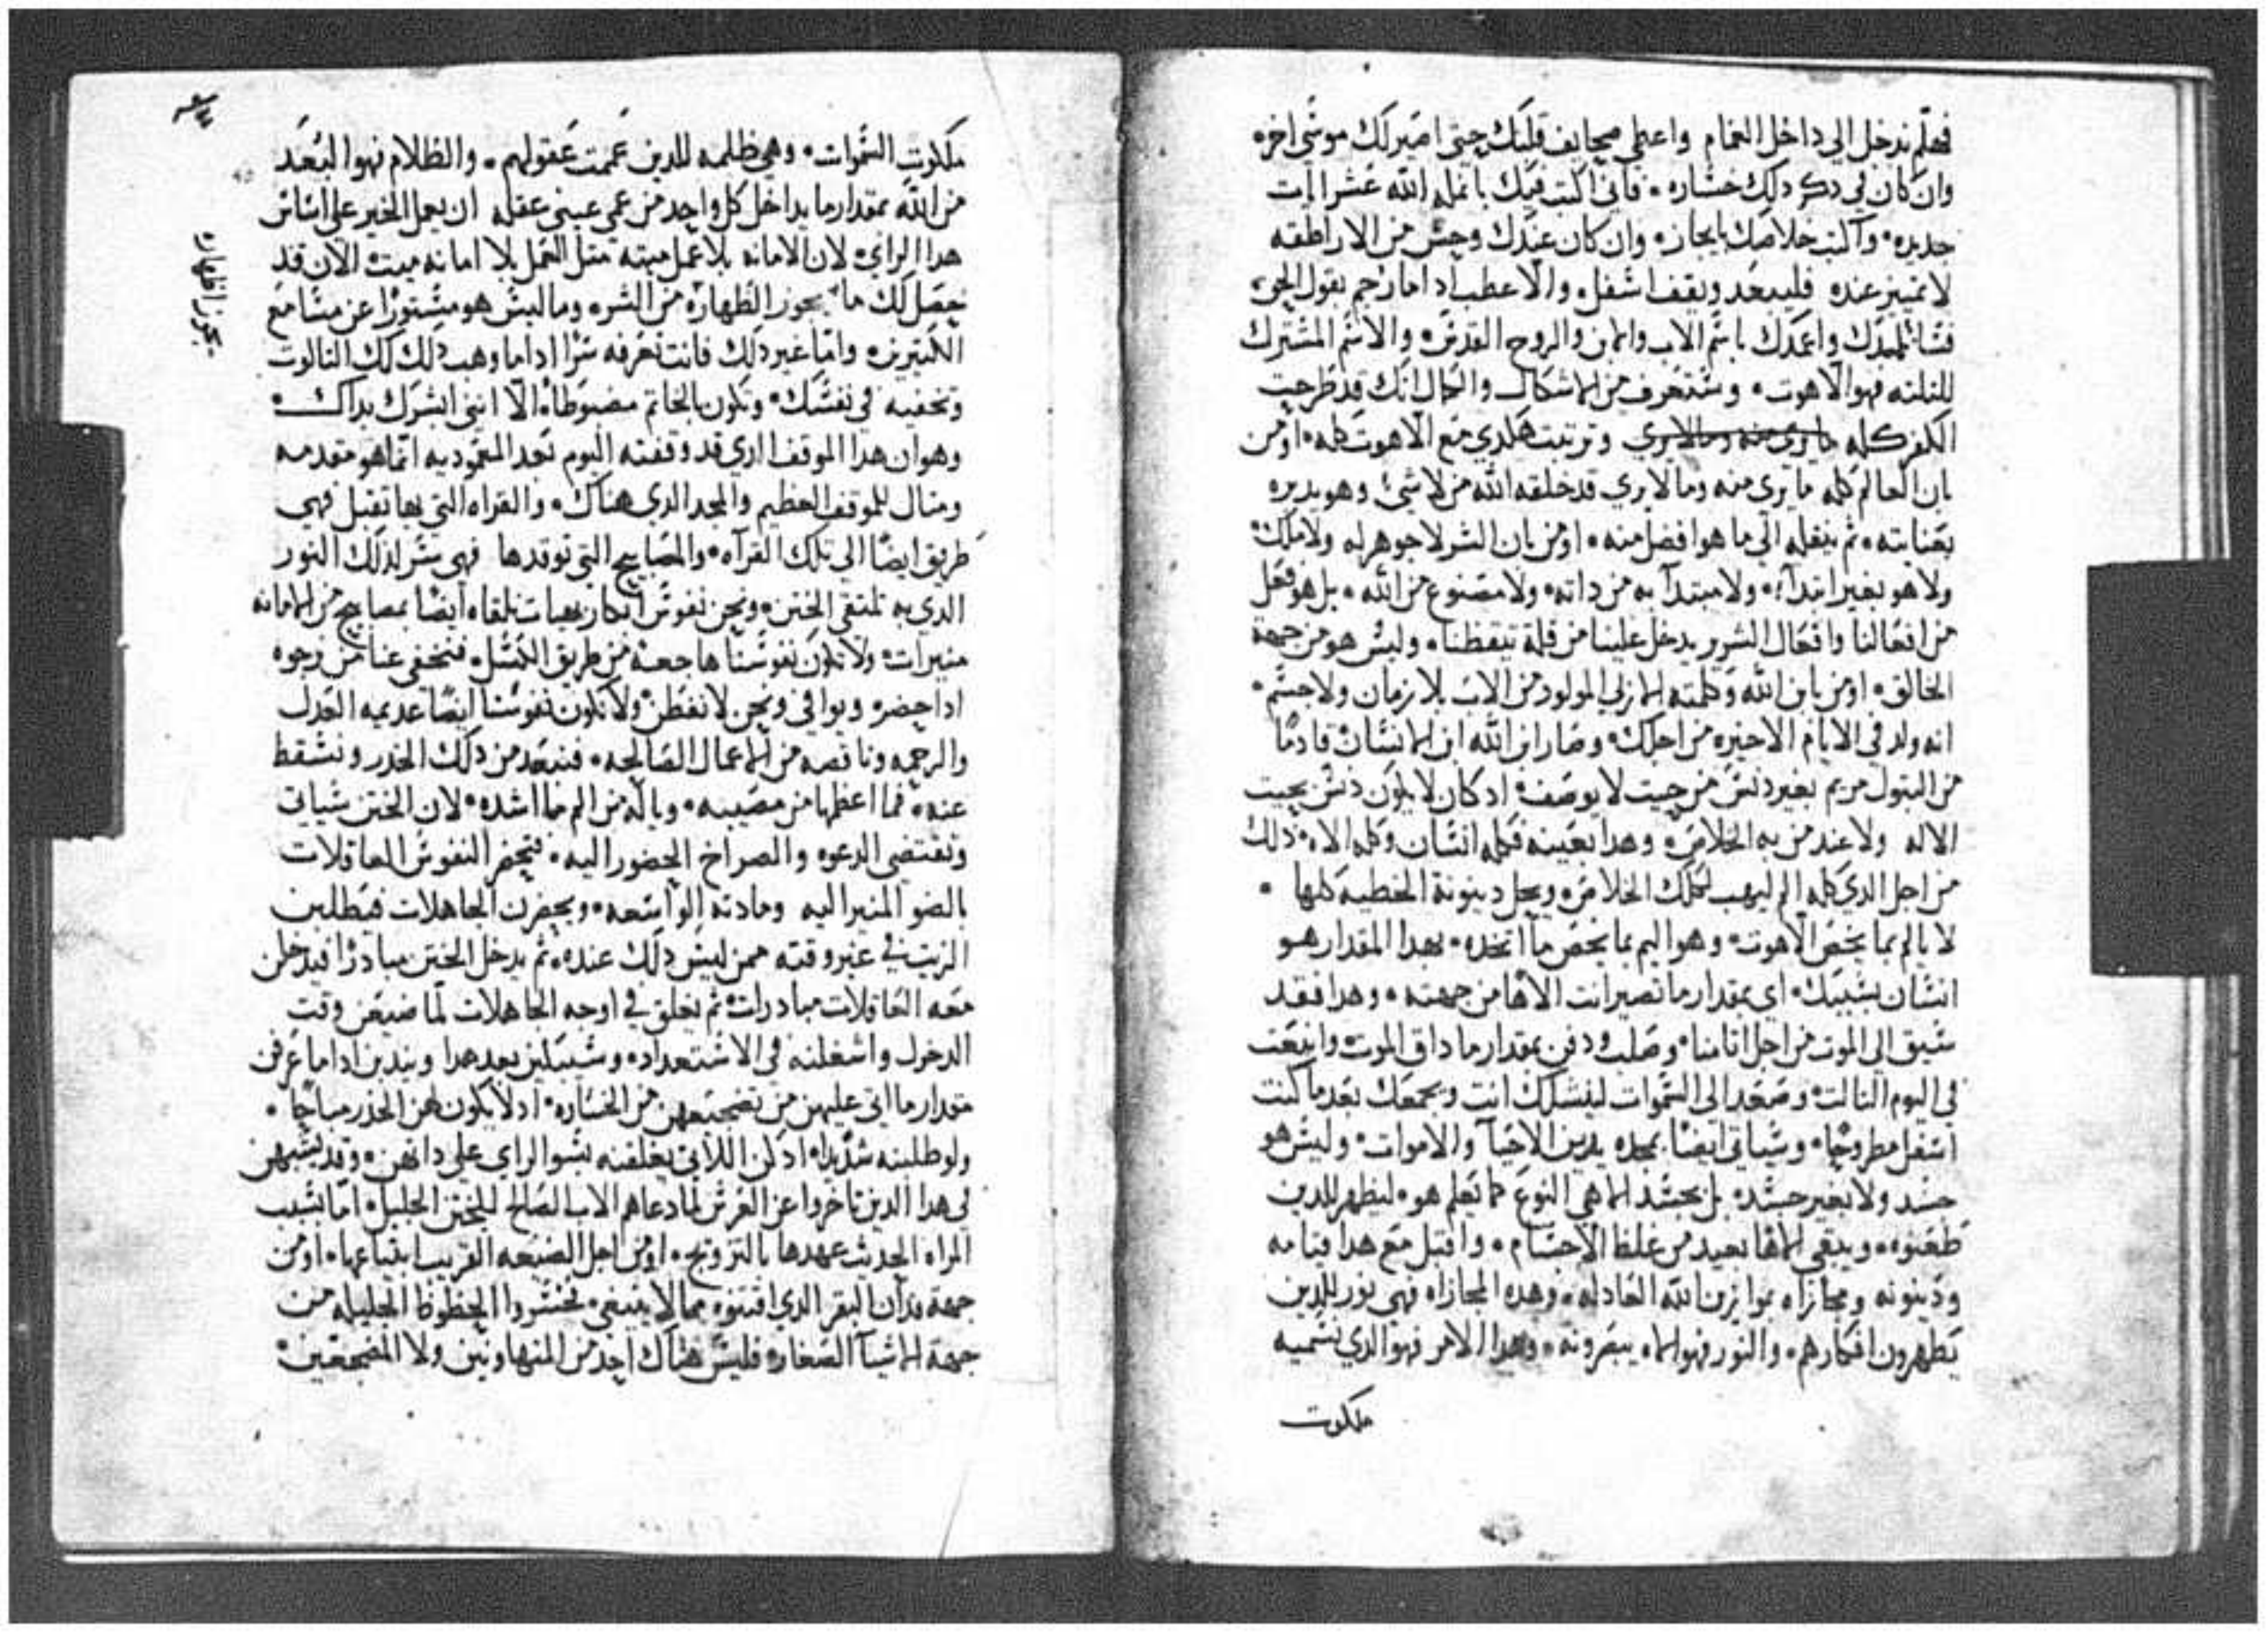 فهلم ندخل الي داخل الغمام واعطي صحايف قلبك حتي اصير لك موسي اخر ه
وان كان في ذكر ذلك خساره ه فاني اكتب فيك بانمله الله عشر ايات
جديده ه واكتب خلاصك بايجاز ه وان كان عندك وحش من الاراطقه
لا تمييز عنده فليبعد ويقف اسفل والا عطب اذا ما رجم بقول الحق
فسا تلمدك واعمدك باسم الاب والابن والروح القدس ه والاسم المشترك
للثلثه فهو الاهوت ه وستعرف من الاشكال والحال انك قد طرحت
الكفر كله وترتبت هكدي مع الاهوت كله ه اومن
بان العالم كله ما يري منه وما لا يري قد خلقه الله من لا شي ه وهو يدبره
بعنايته ه ثم ينقله الي ما هو افضل منه ه اومن بان الشر لا جوهر له ولا ملك
ولا هو بغير ابتدا ه ولا مبتدا به من داته ه ولا مصنوع من الله ه بل هو فعل
من افعالنا وافعال الشرير يدخل علينا من قلة تيقظنا ه وليس هو من جهة
الخالق ه اومن بابن الله وكلمته الازلي المولود من الاب بلا زمان ولا جسم ه
انه ولد في الايام الاخيره من اجلك ه وصار ابن الله ابن الانسان قادما
من البتول مريم بغير دنس من حيت لا يوصف ه اد كان لا يكون دنس بحيت
الاله ولا عند من به الخلاص ه وهدا بعينه فكله انسان وكله الاه ه دلك
من اجل الدي كله الم ليهب لكلك الخلاص ه ويحل دينونة الخطيه كلها ه
لا يالم بما يخص الاهوت ه وهو اليم بما يخص ما اتخده ه بهدا المقدار هو
انسان بسببك ه اي بمقدار ما تصير انت الاها من جهته ه وهدا فقد
سيق الي الموت من اجل اتامنا ه وصلب ودفن بمقدار ما داق الموت ه وانبعت
في اليوم التالت ه وصعد الي السموات لينشلك انت ويجمعك بعد ما كنت
اسفل مطروحا ه وسياتي ايضا بمجده يدين الاحيا والاموات ه وليس هو
جسد ولا بغير جسد ه بل بجسد الاهي النوع كما تعلم هو ه ليظهر للدين
طعنوه ه ويبقي الاها بعيد من غلظ الاجسام ه واقبل مع هدا قيامه
ودينونه ومجازاه بموازين الله العادله ه وهده المجازاه فهي نور للدين
يطهرون افكارهم ه والنور فهو الاه يبصرونه ه وهدا الامر فهو الدي نسميه
ملكوت
ملكوت السموات ه وهي ظلمه للدين عميت عقولهم ه والظلام فهو البعد
من الله بمقدار ما يداخل كل واحد من عمي عيني عقله ان يعمل الخير علي اساس
هدا الراي ه لان الامانه بلا عمل ميته متل العمل بلا امانه ميت ه الان قد
حصل لك ما يجوز اظهاره من السر ه وما ليس هو مستورا عن مسامع
الكتيرين ه واما غير دلك فانت تعرفه سرا ادا ما وهب دلك لك التالوت
وتخفيه في نفسك ه وتكون بالخاتم مضبوطا ه الا انني ابشرك بداك ه
وهو ان هدا الموقف الدي قد وقفته اليوم بعد المعموديه انما هو مقدمه
ومتال للموقف العظيم والمجد الدي هناك ه والقراه التي بها تقبل فهي
طريق ايضا الي تلك القراه ه والمصابيح التي توقدها فهي سر لذلك النور
الدي به نلتقي الختن ه ونحن نفوس ابكار بهيات نلقاه ايضا بمصابيح من الامانه
منيرات ه ولا تكون نفوسنا هاجعه من طريق الكسل ه فتخفي عنا من وجوه
ادا حضر ه ويوافي ونحن لا نفطن ه ولا تكون نفوسنا ايضا عديمه العدل
والرحمه وناقصه من الاعمال الصالحه ه فنبعد من دلك الخدر ونسقط
عنه ه فما اعظمها من مصيبه ه وياله من الم ما اشده ه لان الختن سياتي
وتقتضي الدعوه والصراخ الحضور اليه ه فتحضر النفوس العاقلات
بالضو المنير اليه ومادته الواسعه ه ويحضرن الجاهلات فيطلبن
الزيت في غير وقته ممن ليس دلك عنده ه ثم يدخل الختن مبادرا فيدخلن
معه العاقلات مبادرات ه ثم يغلق في اوجه الجاهلات لما ضيعن وقت
الدخول واشغلنه في الاستعداد ه وسيبكين بعد هدا ويندبن ادا ما عرفن
مقدار ما اتي عليهن من تضجعهن من الخساره ه اد لا يكون لهن الخدر مباحا ه
ولو طلبنه شديدا ه اد كن اللاتي يغلقنه بسو الراي علي داتهن ه وقد يشبهن
في هدا الدين تاخروا عن العرس لما دعاهم الاب الصالح للختن الجليل ه اما بسبب
المراه الحديث عهدها بالتزويج ه او من اجل الضيعه القريب ابتياعها ه او من
جهة فدان البقر الدي اقتنوه مما لا ينبغي ه فخسروا الحظوظ الجليله من
جهة الاشيا الصغار ه فليس هناك احد من المتهاونين ولا المضجعين ه
يجوز اظهاره